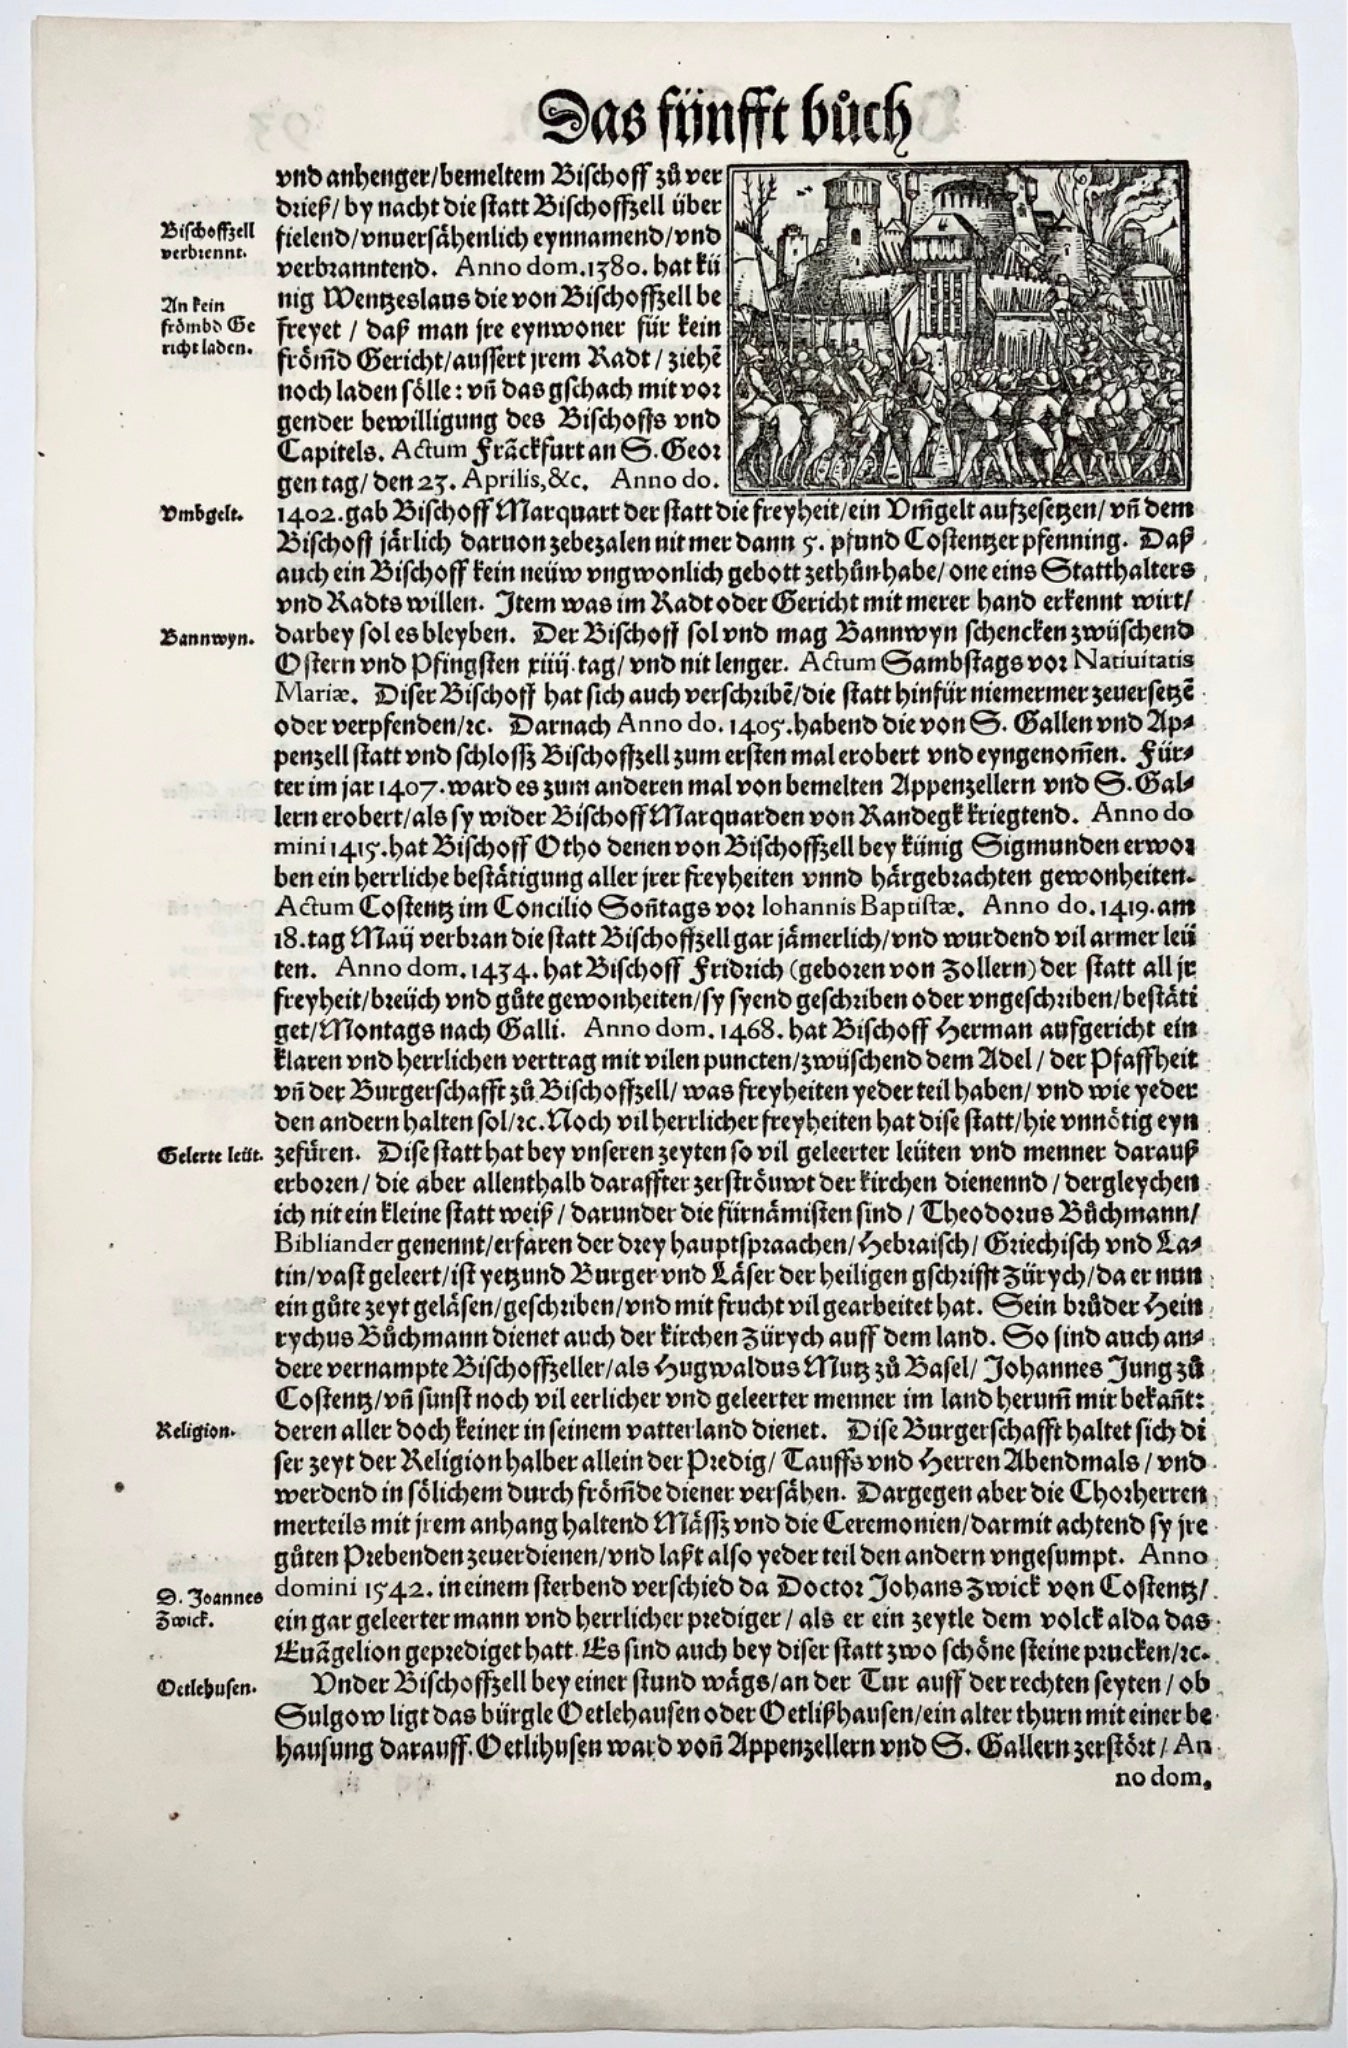 Das fünfft bůch
vnd anhenger/bemeltem Bischoff zů ver
drieß/by nacht die statt Bischoffzell über
Bischoffzell
verbrennt.
fielend/vnuersähenlich eynnamend/vnd
verbranntend. Anno dom.1380. hat kü
An kein
frömbd Ge
richt laden.
nig Wentzeslaus die von Bischoffzell be
freyet / daß man jre eynwoner für kein
frömd̄ Gericht/aussert jrem Radt / ziehē
noch laden sölle: vn̄ das gschach mit vor
gender bewilligung des Bischoffs vnd
Capitels. Actum Frāckfurt an S. Geor
gen tag/ den 23. Aprilis,&c. Anno do.
Vmbgelt.
1402.gab Bischoff Marquart der statt die freyheit/ein Vm̄gelt aufzesetzen/ vn̄ dem
Bischoff järlich daruon zebezalen nit mer dann 5. pfund Costentzer pfenning. Daß
auch ein Bischoff kein neüw vngwonlich gebott zethůn habe/ one eins Statthalters
vnd Radts willen. Item was im Radt oder Gericht mit merer hand erkennt wirt/
Bannwyn.
darbey sol es bleyben. Der Bischoff sol vnd mag Bannwyn schencken zwüschend
Ostern vnd Pfingsten xiiij.tag/ vnd nit lenger. Actum Sambstags vor Natiuitatis
Mariæ. Diser Bischoff hat sich auch verschribē/die statt hinfür niemermer zeuersetzē
oder verpfenden/ꝛc. Darnach Anno do. 1405.habend die von S. Gallen vnd Ap⸗
penzell statt vnd schlossz Bischoffzell zum ersten mal erobert vnd eyngenom̄en. Für⸗
ter im jar 1407. ward es zum anderen mal von bemelten Appenzellern vnd S. Gal⸗
lern erobert/als sy wider Bischoff Marquarden von Randegk kriegtend. Anno do
mini 1415.hat Bischoff Otho denen von Bischoffzell bey künig Sigmunden erwor
ben ein herrliche bestätigung aller jrer freyheiten vnnd härgebrachten gewonheiten.
Actum Costentz im Concilio Son̄tags vor Iohannis Baptistæ. Anno do. 1419.am
18.tag Maij verbran die statt Bischoffzell gar jämerlich/vnd wurdend vil armer leü
ten. Anno dom. 1434. hat Bischoff Fridrich (geboren von Zollern) der statt all jr
freyheit/breüch vnd gůte gewonheiten/sy syend geschriben oder vngeschriben/bestäti
get/Montags nach Galli. Anno dom. 1468. hat Bischoff Herman aufgericht ein
klaren vnd herrlichen vertrag mit vilen puncten/zwüschend dem Adel / der Pfaffheit
vn̄ der Burgerschafft zů Bischoffzell/ was freyheiten yeder teil haben/ vnd wie yeder
den andern halten sol/ꝛc. Noch vil herrlicher freyheiten hat dise statt/hie vnnötig eyn
Gelerte leüt.
zefüren. Dise statt hat bey vnseren zeyten so vil geleerter leüten vnd menner darauß
erboren / die aber allenthalb daraffter zerströuwt der kirchen dienennd / dergleychen
ich nit ein kleine statt weiß / darunder die fürnämisten sind / Theodorus Bůchmann/
Bibliander genennt/erfaren der drey hauptspraachen/Hebraisch/ Griechisch vnd La⸗
tin/vast geleert/ist yetzund Burger vnd Läser der heiligen gschrifft Zürych/da er nun
ein gůte zeyt geläsen/geschriben/vnd mit frucht vil gearbeitet hat. Sein brůder Hein
rychus Bůchmann dienet auch der kirchen Zürych auff dem land. So sind auch an⸗
dere vernampte Bischoffzeller/als Hugwaldus Mutz zů Basel/ Johannes Jung zů
Costentz/vn̄ sunst noch vil eerlicher vnd geleerter menner im land herum̄ mir bekan̄t:
Religion.
deren aller doch keiner in seinem vatterland dienet. Dise Burgerschafft haltet sich di
ser zeyt der Religion halber allein der Predig/ Tauffs vnd Herren Abendmals / vnd
werdend in sölichem durch fröm̄de diener versähen. Dargegen aber die Chorherren
merteils mit jrem anhang haltend Mässz vnd die Ceremonien/darmit achtend sy jre
gůten Prebenden zeuerdienen/vnd laßt also yeder teil den andern vngesumpt. Anno
D. Joannes
Zwick.
domini 1542. in einem sterbend verschied da Doctor Johans Zwick von Costentz/
ein gar geleerter mann vnd herrlicher prediger / als er ein zeytle dem volck alda das
Euāgelion geprediget hatt. Es sind auch bey diser statt zwo schöne steine prucken/ꝛc.
Oetlehusen.
Vnder Bischoffzell bey einer stund wägs/an der Tur auff der rechten seyten / ob
Sulgow ligt das bürgle Oetlehausen oder Oetlißhausen/ein alter thurn mit einer be
hausung darauff. Oetlihusen ward von̄ Appenzellern vnd S. Gallern zerstört / An
no dom,